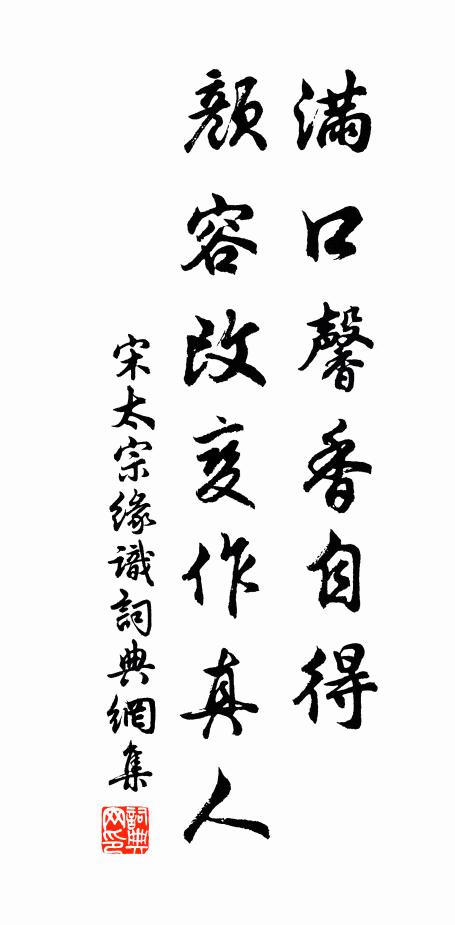 滿口馨香自得
顏容改变作真人
宋太宗緣識詞典網集
詞典网印